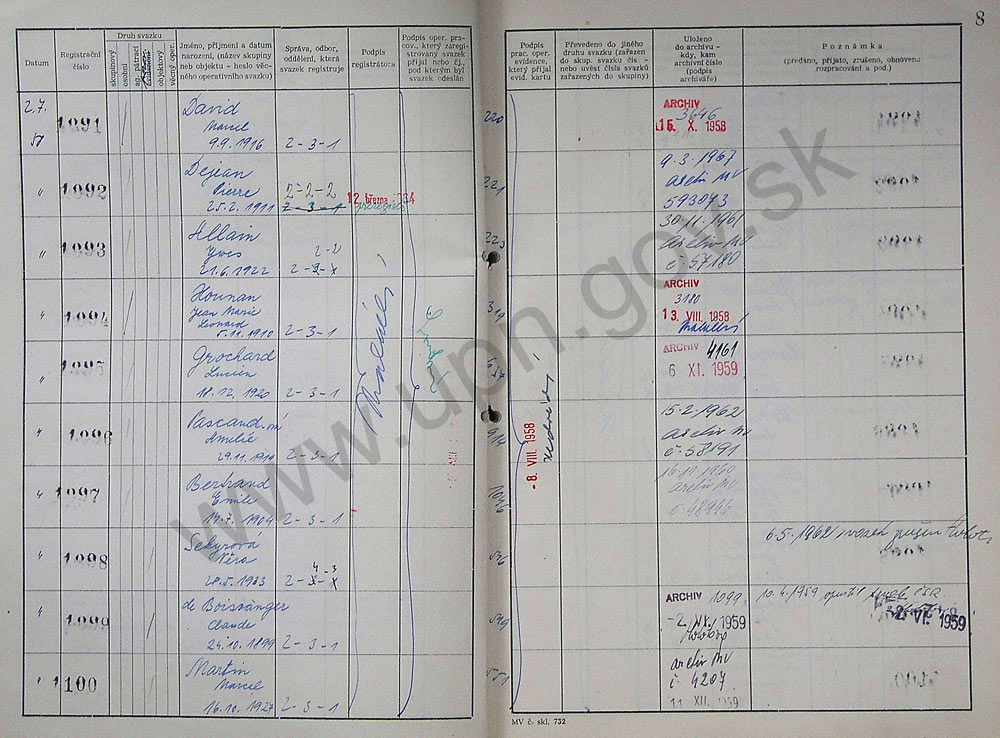 8
Datum
Registrační číslo
Druh svazku
skupinový
osobní
ag. pátrací
objektový
věcný oper.
Jméno, příjmení a datum narození, (název skupiny neb objektu - heslo věcného operativního svazku)
Správa, odbor, oddělení, která svazek registruje
Podpis registrátora
Podpis oper. pracov., který zaregistrovaný svazek přijal nebo čj., pod kterým byl svazek odeslán
Podpis prac. oper. evidence, který přijal evid. kartu
Převedeno do jiného druhu svazku (zařazen do skup. svazku čís - nebo uvést čísla svazků zařazených do skupiny)
Uloženo do archivu - kdy, kam archivní číslo (podpis archiváře)
Poznámka
(předáno, přijato, zrušeno, obnoven. rozpracování a pod.)
2.7.
1091
David
Marcel
9.9.1916 2-3-1
220
ARCHIV
3646
15. X. 1958
" 1092
Dejean
Pierre 2-2-2
25.2.1911 2-3-1
12. března
221
9.3.1967
archiv MV
593073
" 1093
Allain
Yves
21.6.1922
223
30.11.1961
archiv MV
č. 57180
" 1094
Hounan
Jean Marie
Leonard
5.11.1910 2-3-1
319
ARCHIV
3180
13. VIII. 1958
" 1095
Grochard
Lucien
18.12.1920 2-3-1
ARCHIV 4161
6 XI. 1959
" 1096
Amelie
29.11.1911 2-3-1
- 8. VIII. 1958
15.2.1962
archiv MV
č. 58191
" 1097
Bertrand
Emile
14.7.1904 2-3-1
archiv MV
č. 48946
" 1098
Sekyrová
Věra
28.5.1933
6.5.1962 svazek
" 1099
de Boissanger
Claude
24.10.1899 2-3-1
ARCHIV 1099
- 2. VI. 1959
10.4.1959 opustil ČSR
2. VI. 1959
" 1100
Martin
Marcel
16.10.1927 2-3-1
551
archiv MV
č. 4207
11 XII. 1959
MV č. skl. 732
www.upn.gov.sk